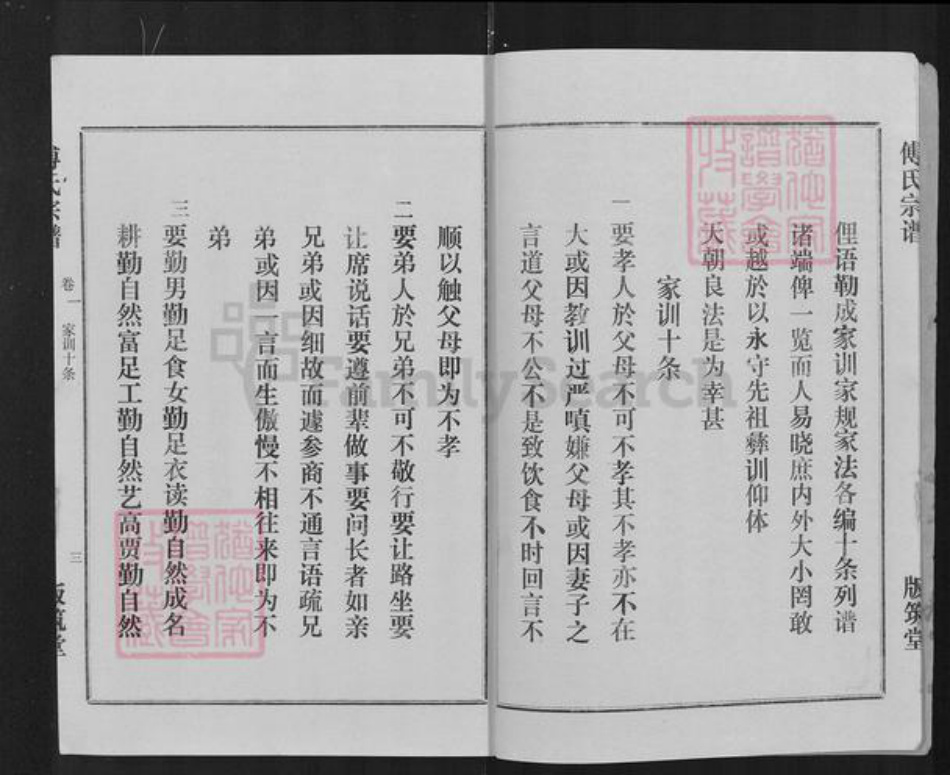 傅氏宗谱
版筑堂
俚语勒成家训家规家法各编十条列谱
诸端俾一览而人易晓庶内外大小罔敢
或越於以永守先祖彝训仰体
天朝良法是为幸甚
家训十条
一要孝人於父母不可不孝其不孝亦不在
大或因教训过严嗔嫌父母或因妻子之
言道父母不公不是致饮食不时回言不
顺以触父母即为不孝
二要弟人於兄弟不可不敬行要让路坐要
让席说话要遵前辈做事要问长者如亲
兄弟或因细故而遽参商不通言语疏兄
弟或因一言而生傲慢不相往来即为不
弟
三要勤男勤足食女勤足衣读勤自然成名
耕勤自然富足工勤自然艺高贾勤自然
卷一 家训十条
三
FamilySearch